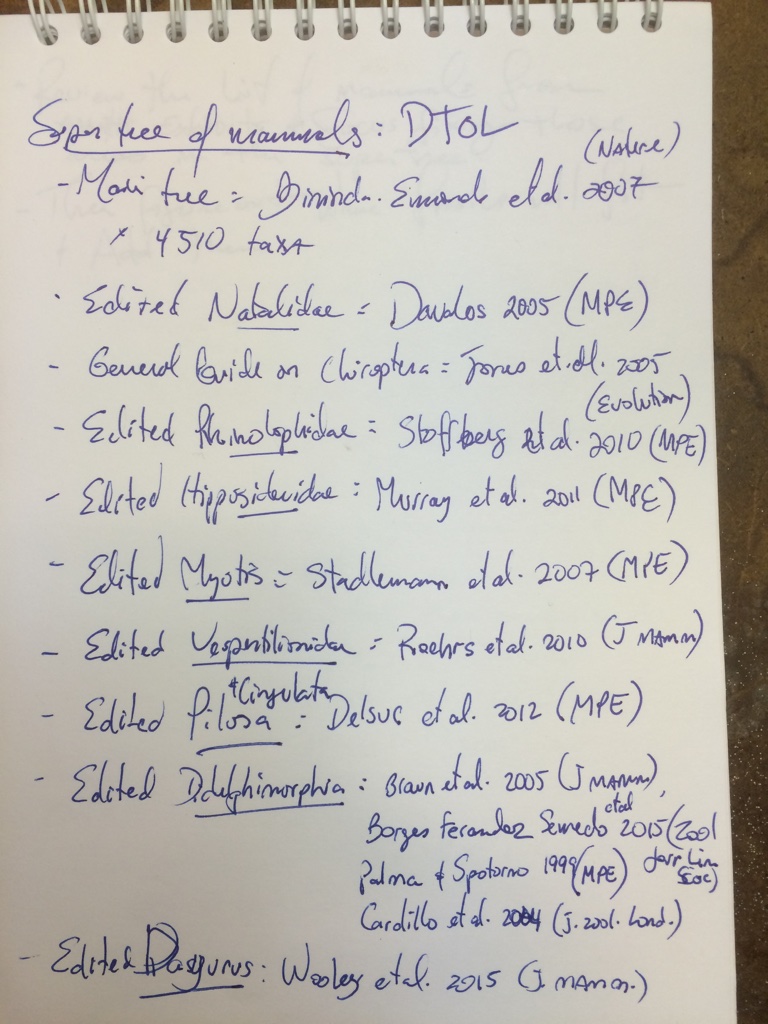 Super tree of mammals: DTOL
- Main tree = Bininda-Emonds et al. 2007 (Nature)
* 4510 taxa
- Edited Natalidae = Davalos 2005 (MPE)
- General Guide on Chiroptera = Jones et al. 2005 (Evolution)
- Edited Rhinolophidae = Stoffberg et al. 2010 (MPE)
- Edited Hipposideridae : Murray et al. 2011 (MPE)
- Edited Myotis = Stadlemann et al. 2007 (MPE)
- Edited Vespertilionidae = Roehrs et al. 2010 (J MAmm)
- Edited Pilosa + Cingulata : Delsuc et al. 2012 (MPE)
- Edited Didelphimorphia : Braun et al. 2005 (J MAMM),
Borges Ferandez Semedo et al 2015 (Zool Jour Lin Soc)
Palma & Spotorno 1999 (MPE)
Cardillo et al. 2004 (J. Zool. Lond.)
- Edited Dasyurus : Wooley et al. 2015 (J. MAmm.)